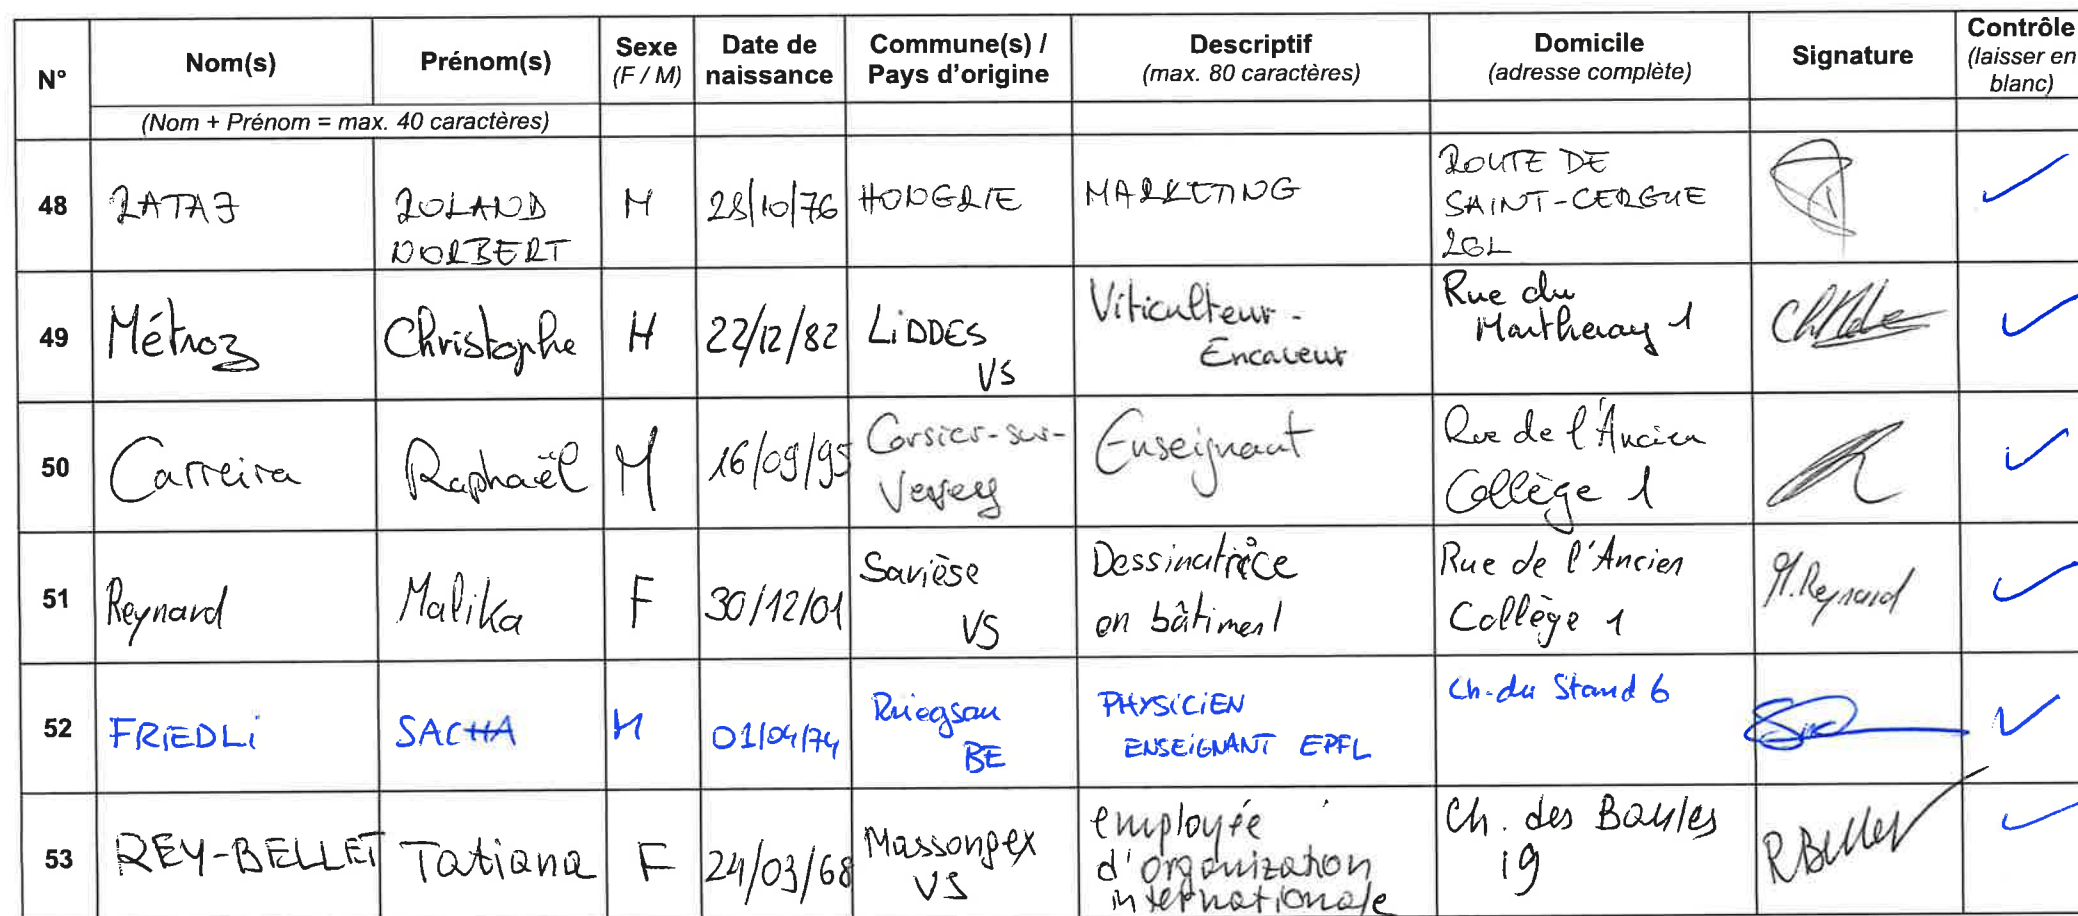 N° Nom(s) Prénom(s) Sexe (F / M) Date de naissance Commune(s) / Pays d'origine Descriptif (max. 80 caractères) Domicile (adresse complète) Signature Contrôle (laisser en blanc)
(Nom + Prénom = max. 40 caractères)
48 RATAJ ROLAND NORBERT M 28/10/76 HONGRIE MARKETING ROUTE DE SAINT-CERGUE
49 Métroz Christophe H 22/12/82 LiDDES VS Viticulteur - Encaveur Rue du Martheray 1
50 Carreira Raphaël M 16/09/95 Corsier-sur-Vevey Enseignant Rue de l'Ancien Collège 1
51 Reynard Malika F 30/12/01 Savièse VS Dessinatrice en bâtiment Rue de l'Ancien Collège 1 M. Reynard
52 FRiEDLi SACHA M 01/04/74 BE PHYSiCiEN ENSEiGNANT EPFL Ch. du Stand 6
53 REY-BELLET Tatiana F 24/03/68 Massongex VS employée d'organization internationale Ch. des Baules 19 R Bellet